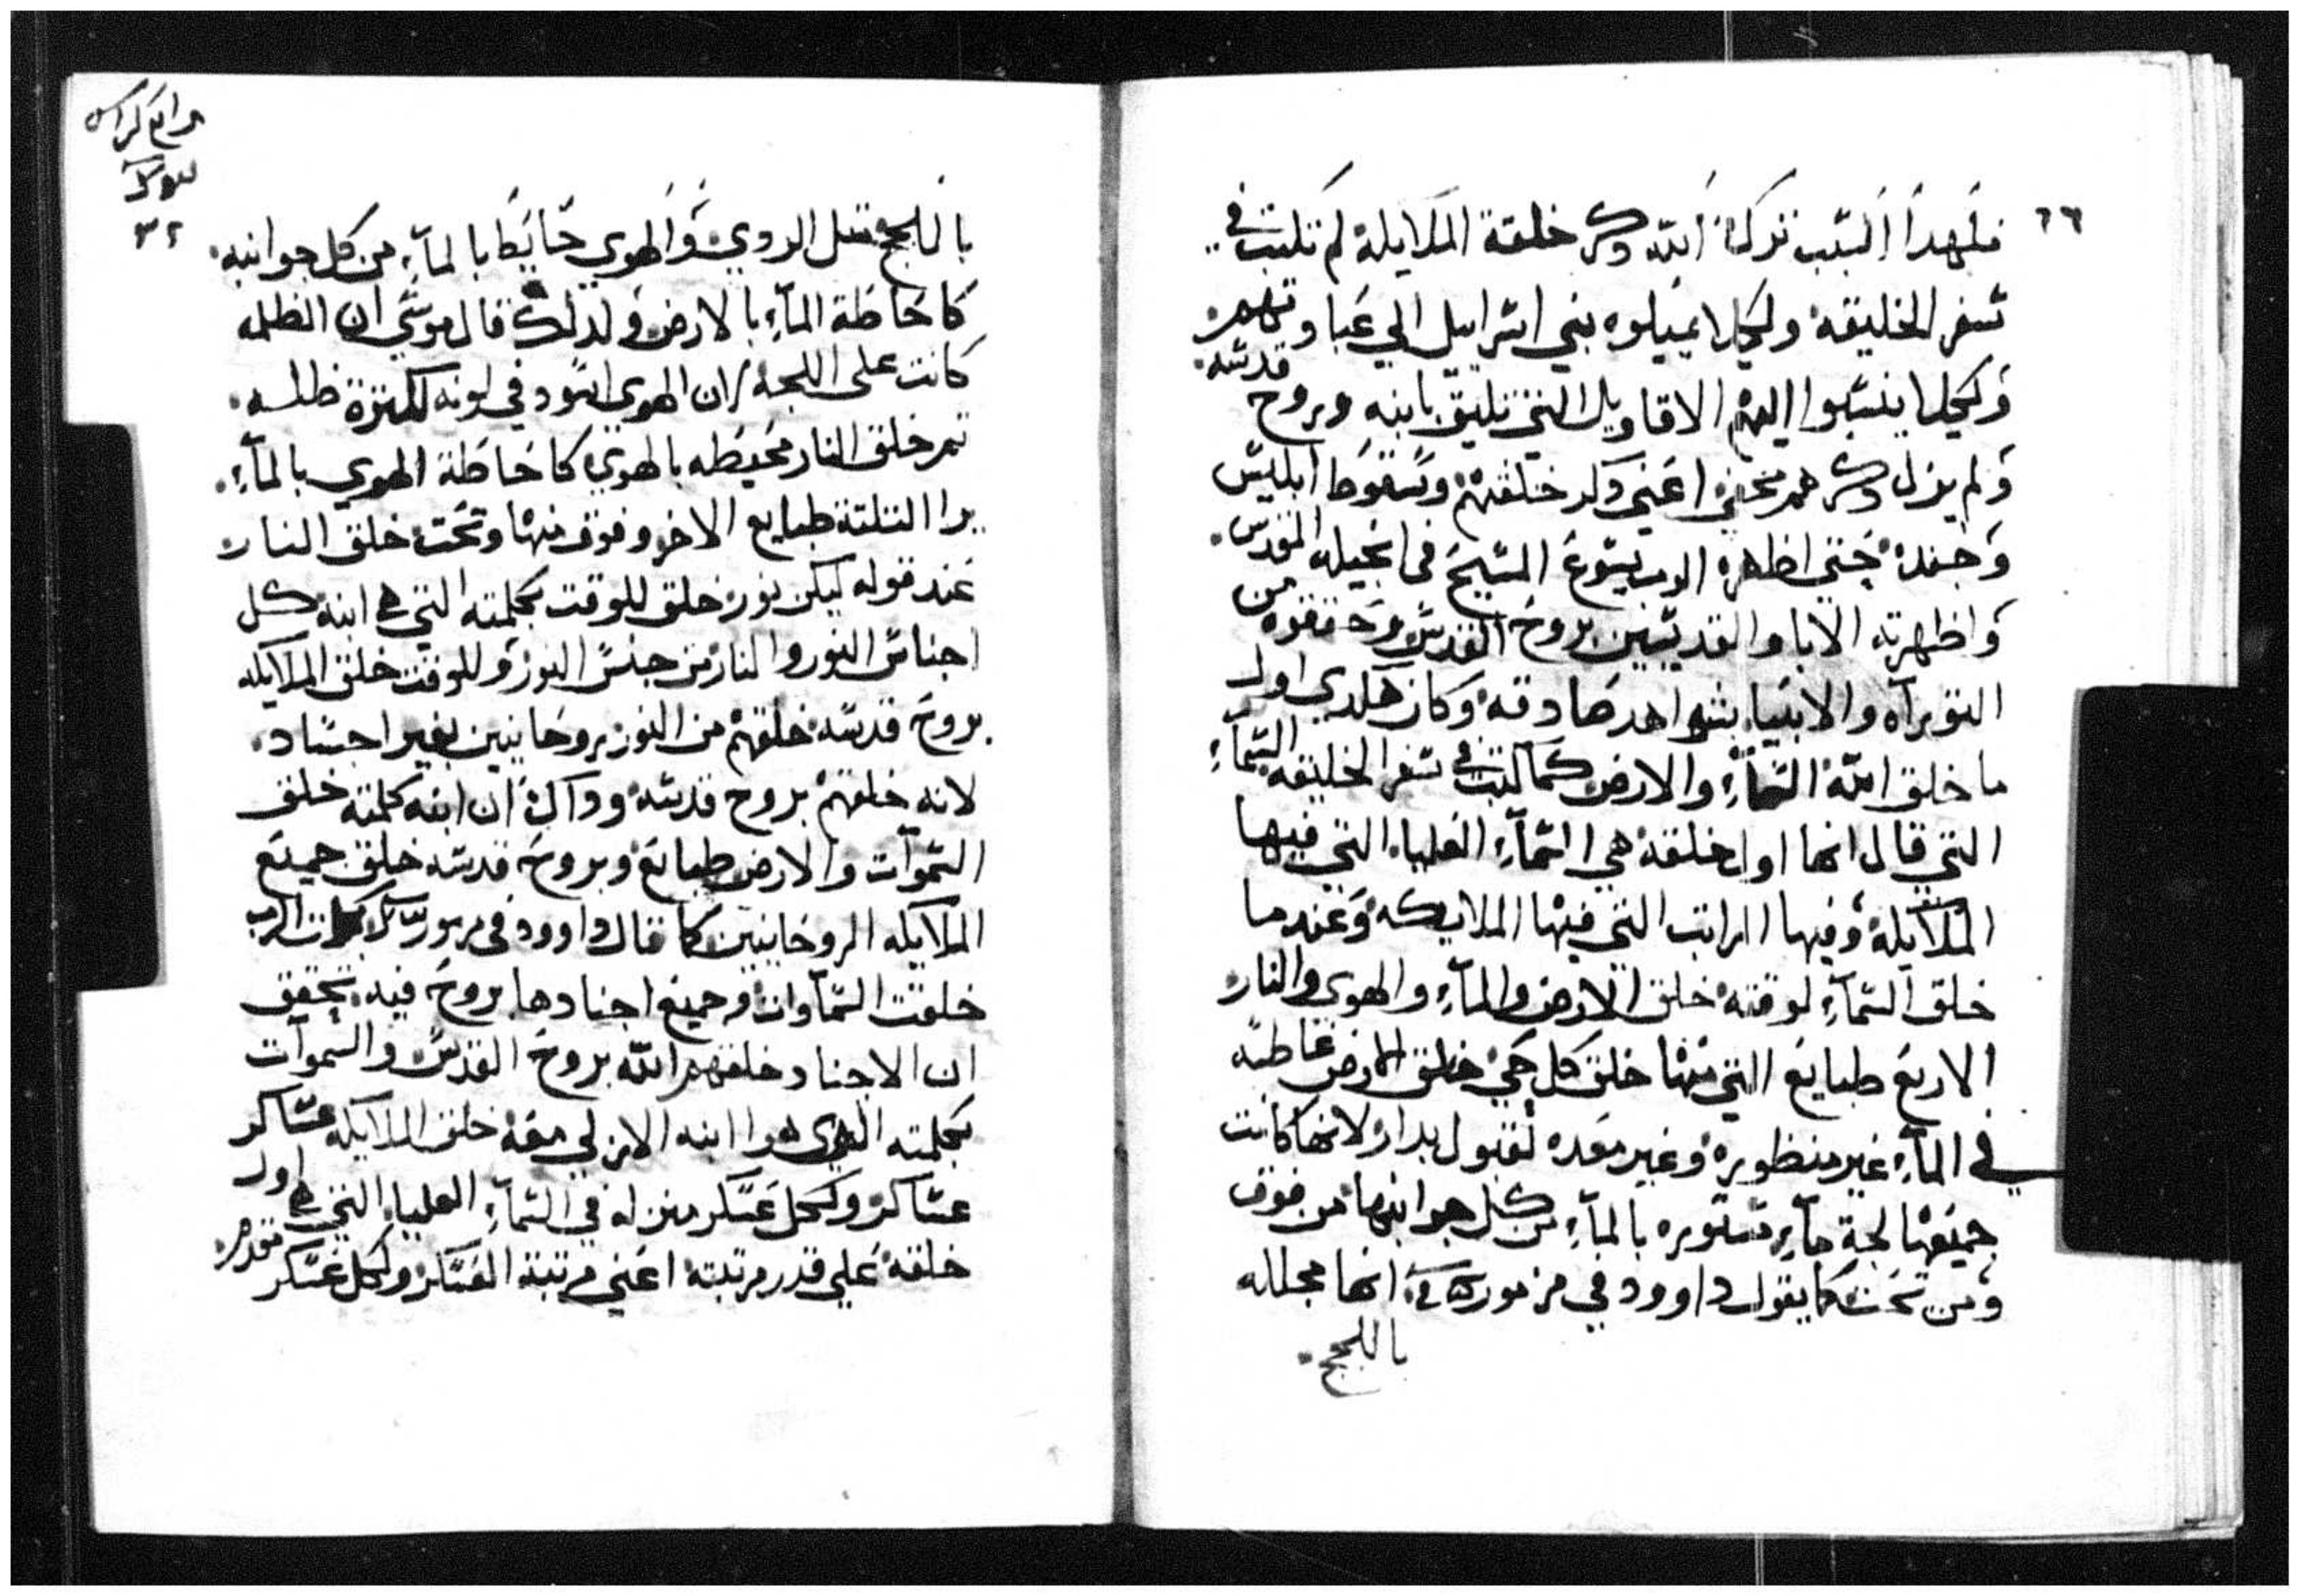 ٦٦
فلهدا السبب ترك الله دكر خلقة الملايكة لم تكتب في
سفر الخليقة وليلا يميلوه بني اسراييل الي عباوتهم
وليلا ينسبوا اليهم الاقاويل التي تليق بابنه وبروح قدسه
ولم يزل دكرهم مخفي اعني دكر خلقتهم وسقوط ابليس
وجنده حتي اظهره الرب يسوع المسيح في انجيله المقدس
واظهرته الابا والقديسين بروح القدس وحققوه من
التوراه والانبيا بشواهد صادقة وكان هكدي اول
ما خلق الله السمآء والارض كما كتب في سفر الخليقة السمآء
التي قال انها اول خلقة هي السمآء العليا التي فيها
الملايكة وفيها المراتب التي فيها الملايكه وعندما
خلق السمآء لوقته خلق الارض والمآء والهوي والنار
الاربع طبايع التي منها خلق كل حي خلق الارض غاطسه
في المآء غير منظوره وغير معده لقبول بدار لانها كانت
جميعها لجة مآء مستوره بالمآء من كل جوانبها من فوق
ومن تحت كما يقول داوود في مزمور انها مجلله
باللجج
رابع كراس
٣٢
باللجج مثل الردي والهوي حايط بالمآء من كل جوانبه
كاحاطة المآء بالارض ولدلك قال موسي ان الظلمه
كانت على اللجة لان الهوي اسود في لونه لكثرة ظلمه
تم خلق النار محيطه بالهوي كاحاطة الهوي بالمآء
برا التلتة طبايع الاخر وفوق منها وتحت خلق النار
عند قوله ليكن نور خلق للوقت بكلمته التي هي ابنه كل
اجناس النور والنار من جنس النور وللوقت خلق الملايكه
بروح قدسه خلقهم من النور روحانيين بغير اجساد
لانه خلقهم بروح قدسه ودالك ان ابنه كلمته خلق
السموات والارض طبايع وبروح قدسه خلق جميع
الملايكه الروحانيين كما قال داوود في مزمور بكلمات الرب
خلقت السماوات وجميع اجنادها بروح فيه تحقق
ان الاجناد خلقهم الله بروح القدس والسموات
بكلمته الدي هوا ابنه الازلي معه خلق الملايكه عساكر
عساكر ولكل عسكر منزله في السمآء العليا التي هي اول
خلقة علي قدر مرتبته اعني مرتبة العسكر ولكل عسكر مقدم